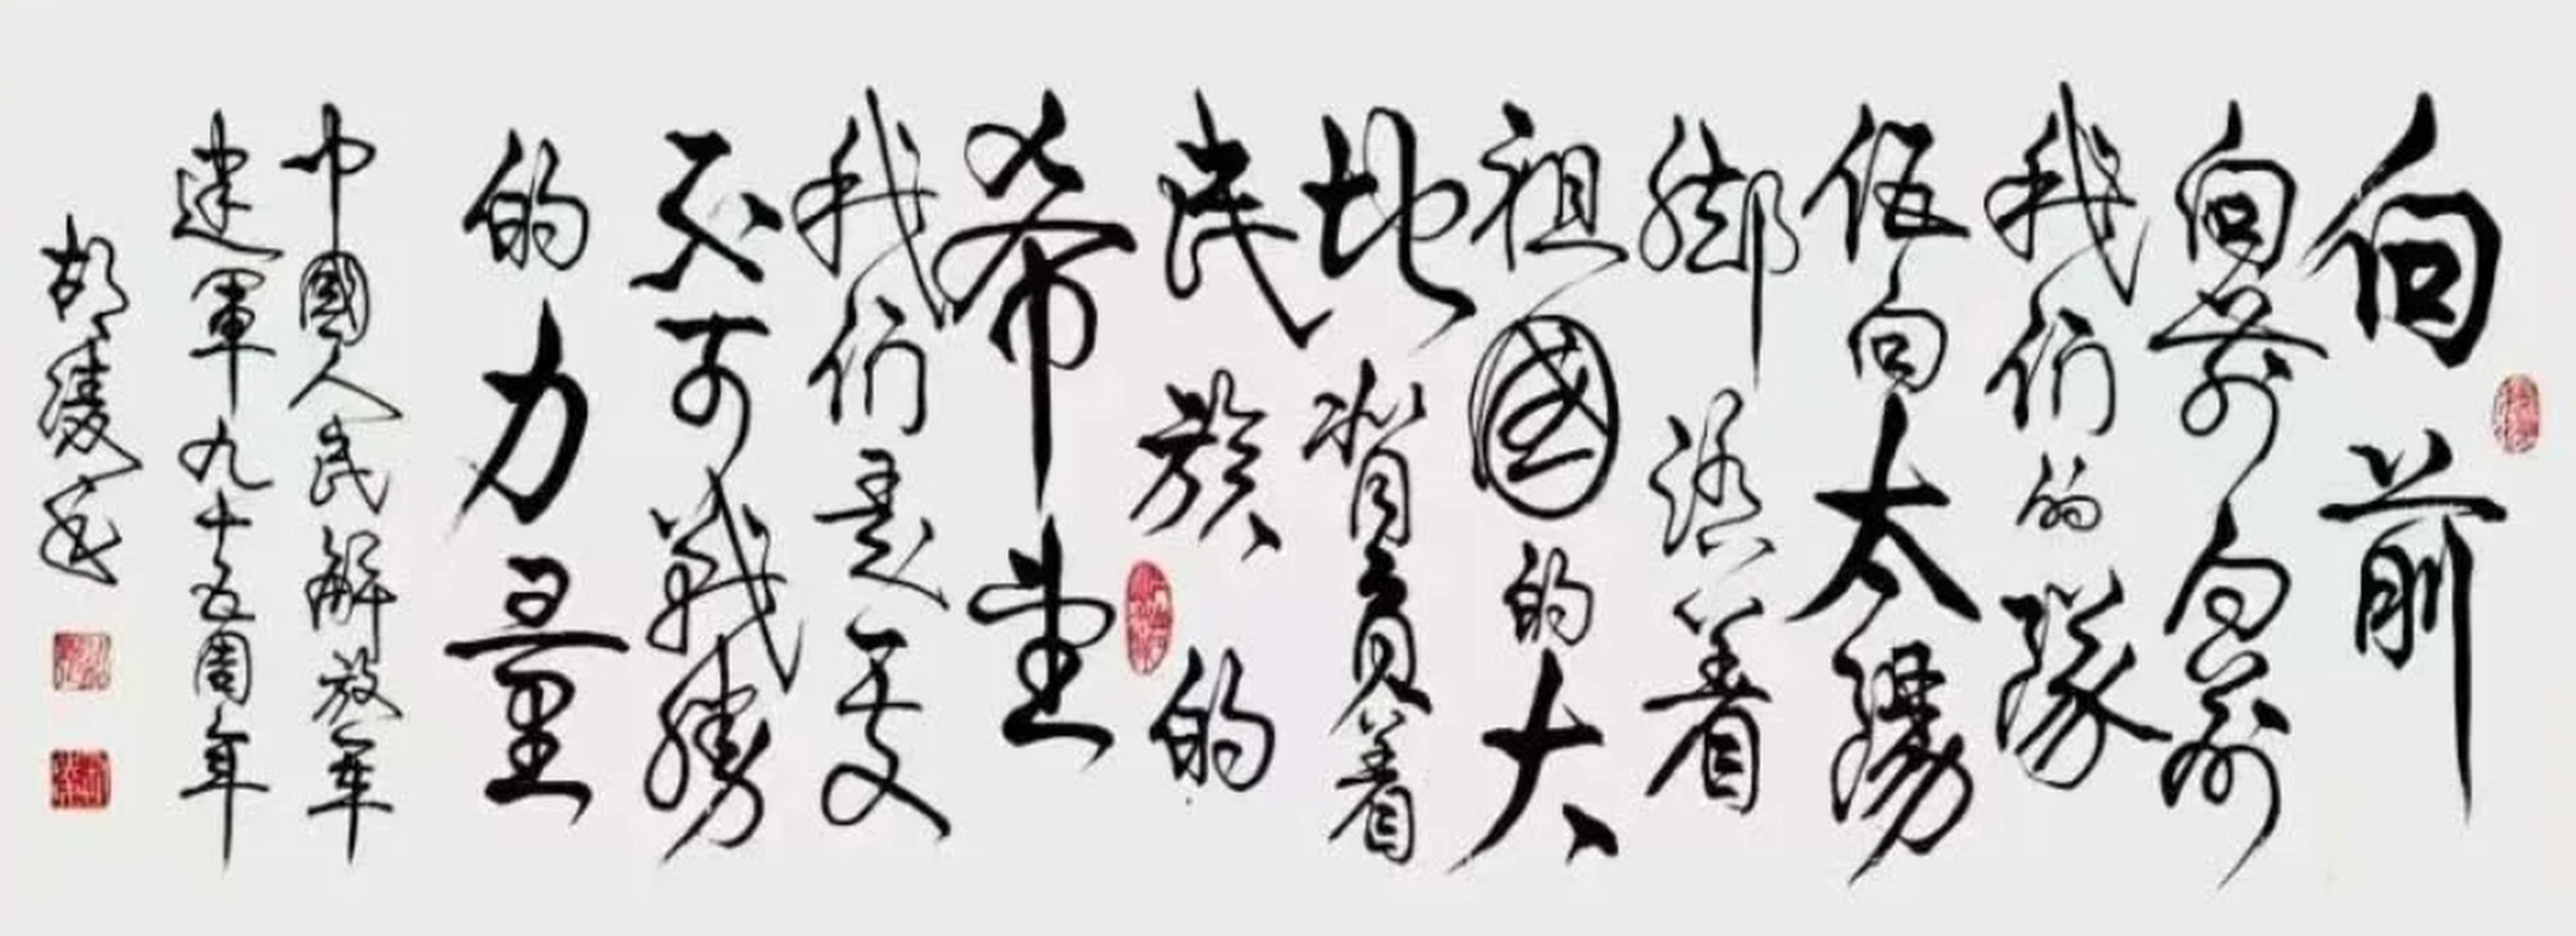 向前
向前向前
我们的隊
伍向太陽
脚踏着
祖國的大
地背負着
民族的
希望
我们是一支
不可戰勝
的力量
中國人民解放軍
建軍九十五周年